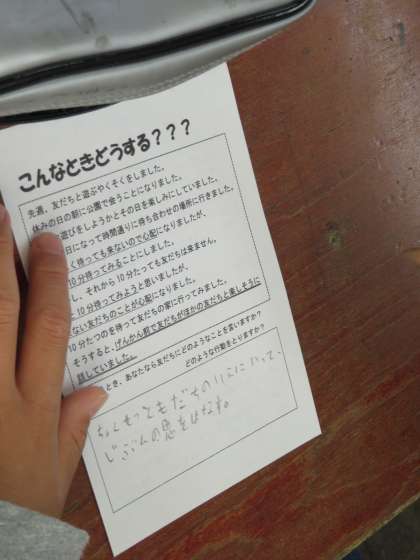 こんなときどうする???
先週、友だちと遊ぶやくそくをしました。
休みの日の朝に公園で会うことになりました。
遊びをしようかとその日を楽しみにしていました。
日になって時間通りに待ち合わせの場所に行きました。
く待っても来ないので心配になりましたが、
10分待ってみることにしました。
し、それから10分たっても友だちは来ません。
10分待ってみようと思いましたが、
ない友だちのことが心配になりました。
10分たつのを待って友だちの家に行ってみました。
そうすると、げんかん前で友だちがほかの友だちと楽しそうに
話していました。
とき、あなたなら友だちにどのようなことを言いますか?
どのような行動をとりますか?
ちょくせつともだちの いって、
じぶんの思をはなす。